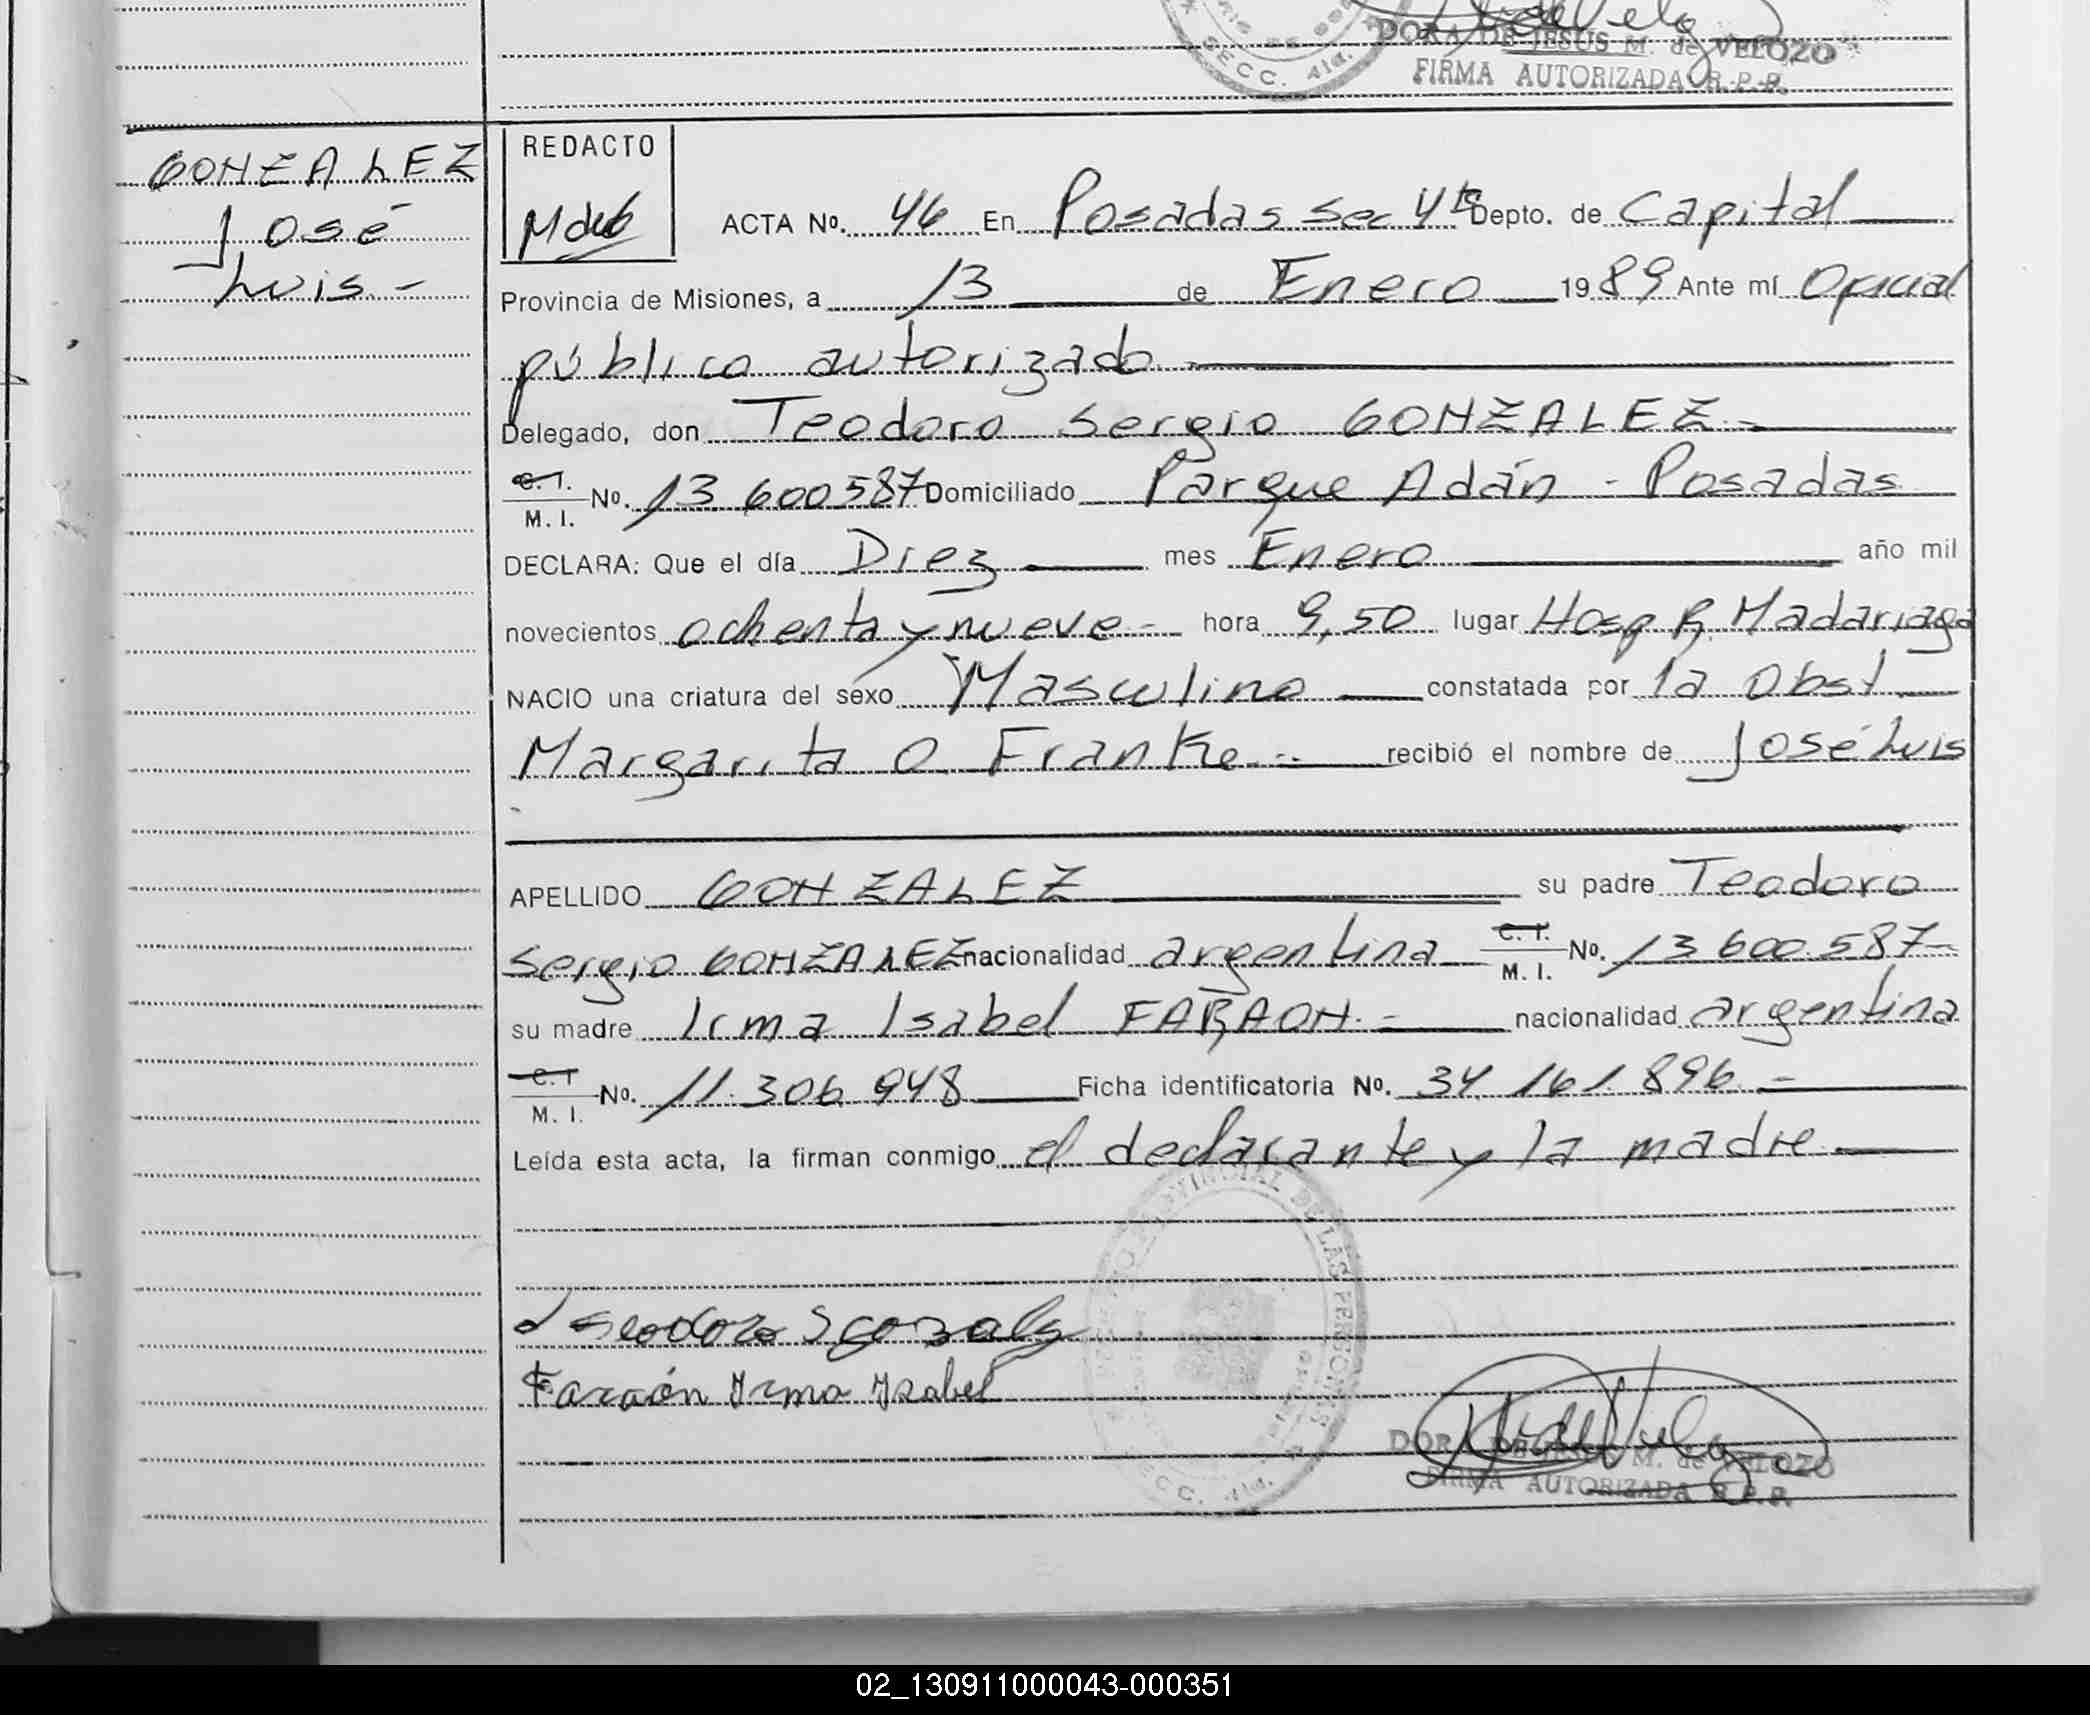 DORA DE JESUS M. de VELOZO
SECC. 4ta.
FIRMA AUTORIZADA R.P.P.
GONZALEZ
José
Luis.-
REDACTO
ACTA No. 46 En Posadas Sec 4ta Depto. de Capital
Provincia de Misiones, a 13 de Enero 1989 Ante mí Oficial
público autorizado.-
Delegado, don Teodoro Sergio GONZALEZ.-
C. I.
M. I. No. 13.600.587 Domiciliado Parque Adán - Posadas
DECLARA: Que el día Diez mes Enero año mil
novecientos ochenta y nueve.- hora 9,50 lugar Hosp R. Madariaga
NACIO una criatura del sexo Masculino constatada por la Obst.
Margarita O. Franke.-.- recibió el nombre de José Luis
APELLIDO GONZALEZ su padre Teodoro
Sergio GONZALEZ nacionalidad argentina C. I. M. I. No. 13.600.587-
su madre Irma Isabel FARAON.- nacionalidad argentina
C. I
M. I. No. 11.306.948 Ficha identificatoria No. 34.161.896.-
Leída esta acta, la firman conmigo el declarante y la madre.
PROVINCIAL DE LAS PERSONAS
Teodoro S gozalez
Faraón Irma Isabel
DORA DE JESUS M. de VELOZO
SECC. 4ta.
FIRMA AUTORIZADA R.P.P.
02_130911000043-000351